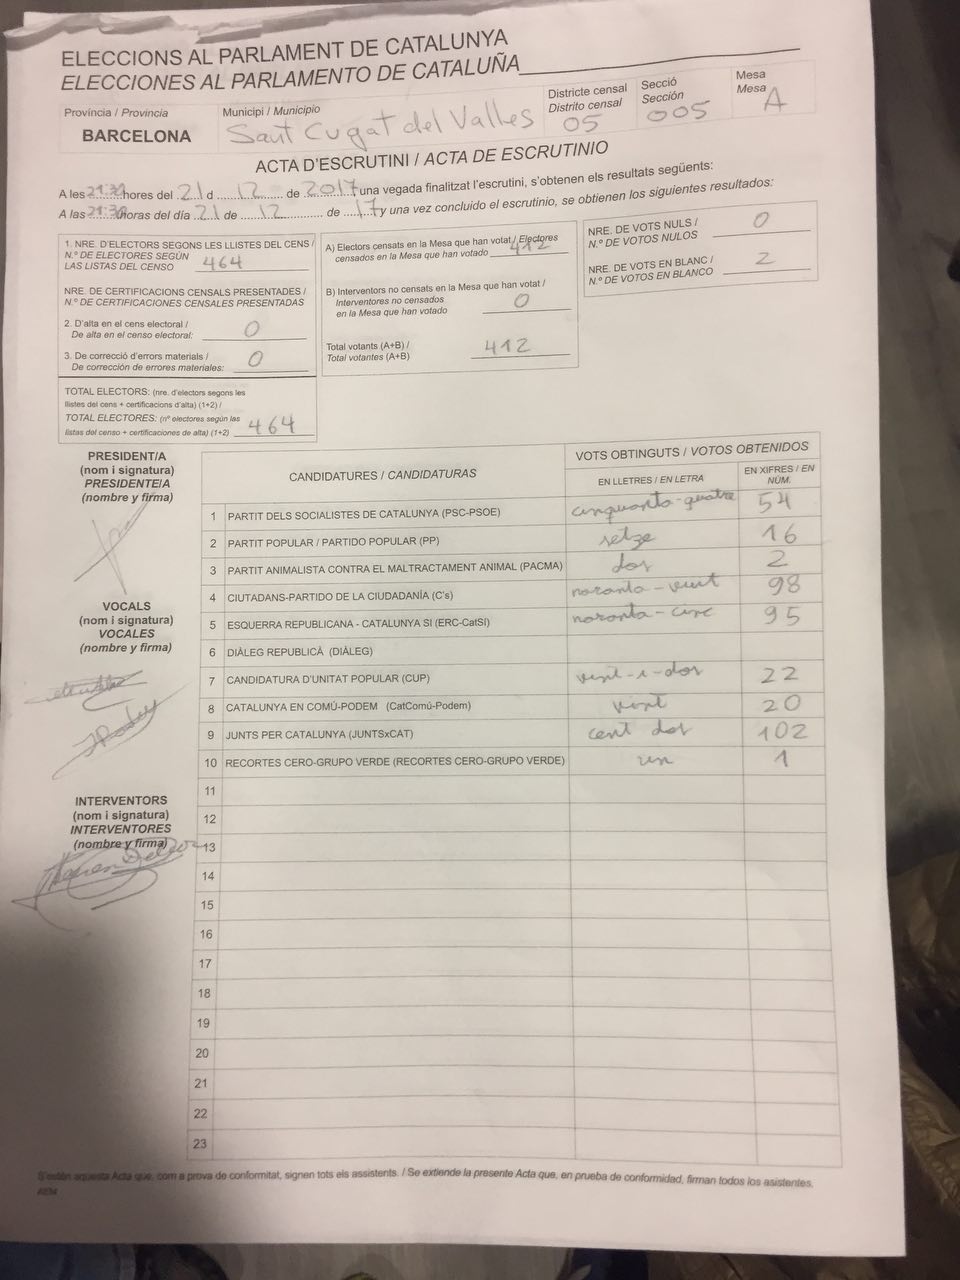 ELECCIONS AL PARLAMENT DE CATALUNYA
ELECCIONES AL PARLAMENTO DE CATALUÑA
Província / Provincia
BARCELONA
Municipi / Municipio
Sant Cugat del Valles
Districte censal
Distrito censal
05
Secció
Sección
005
Mesa
Mesa
A
ACTA D'ESCRUTINI / ACTA DE ESCRUTINIO
A les 21:30 hores del 21 d 12 de 2017 una vegada finalitzat l'escrutini, s'obtenen els resultats següents:
A las 21:30 horas del día 21 de 12 de 17 y una vez concluido el escrutinio, se obtienen los siguientes resultados:
1. NRE. D'ELECTORS SEGONS LES LLISTES DEL CENS /
N.º DE ELECTORES SEGÚN
LAS LISTAS DEL CENSO 464
NRE. DE CERTIFICACIONS CENSALS PRESENTADES /
N.º DE CERTIFICACIONES CENSALES PRESENTADAS
2. D'alta en el cens electoral /
De alta en el censo electoral: 0
3. De correcció d'errors materials /
De corrección de errores materiales: 0
TOTAL ELECTORS: (nre. d'electors segons les
llistes del cens + certificacions d'alta) (1+2) /
TOTAL ELECTORES: (nº electores según las
listas del censo + certificaciones de alta) (1+2) 464
A) Electors censats en la Mesa que han votat / Electores
censados en la Mesa que han votado 412
B) Interventors no censats en la Mesa que han votat /
Interventores no censados
en la Mesa que han votado 0
Total votants (A+B) /
Total votantes (A+B) 412
NRE. DE VOTS NULS /
N.º DE VOTOS NULOS 0
NRE. DE VOTS EN BLANC /
N.º DE VOTOS EN BLANCO 2
PRESIDENT/A
(nom i signatura)
PRESIDENTE/A
(nombre y firma)
VOCALS
(nom i signatura)
VOCALES
(nombre y firma)
INTERVENTORS
(nom i signatura)
INTERVENTORES
(nombre y firma)
CANDIDATURES / CANDIDATURAS
VOTS OBTINGUTS / VOTOS OBTENIDOS
EN LLETRES / EN LETRA
EN XIFRES / EN NÚM.
1 PARTIT DELS SOCIALISTES DE CATALUNYA (PSC-PSOE) cinquanta-quatre 54
2 PARTIT POPULAR / PARTIDO POPULAR (PP) setze 16
3 PARTIT ANIMALISTA CONTRA EL MALTRACTAMENT ANIMAL (PACMA) dos 2
4 CIUTADANS-PARTIDO DE LA CIUDADANÍA (C's) noranta-vuit 98
5 ESQUERRA REPUBLICANA - CATALUNYA SI (ERC-CatSí) noranta-cinc 95
6 DIÀLEG REPUBLICÀ (DIÀLEG)
7 CANDIDATURA D'UNITAT POPULAR (CUP) vint-i-dos 22
8 CATALUNYA EN COMÚ-PODEM (CatComú-Podem) vint 20
9 JUNTS PER CATALUNYA (JUNTSxCAT) cent dos 102
10 RECORTES CERO-GRUPO VERDE (RECORTES CERO-GRUPO VERDE) un 1
11
12
13
14
15
16
17
18
19
20
21
22
23
S'estén aquesta Acta que, com a prova de conformitat, signen tots els assistents. / Se extiende la presente Acta que, en prueba de conformidad, firman todos los asistentes.